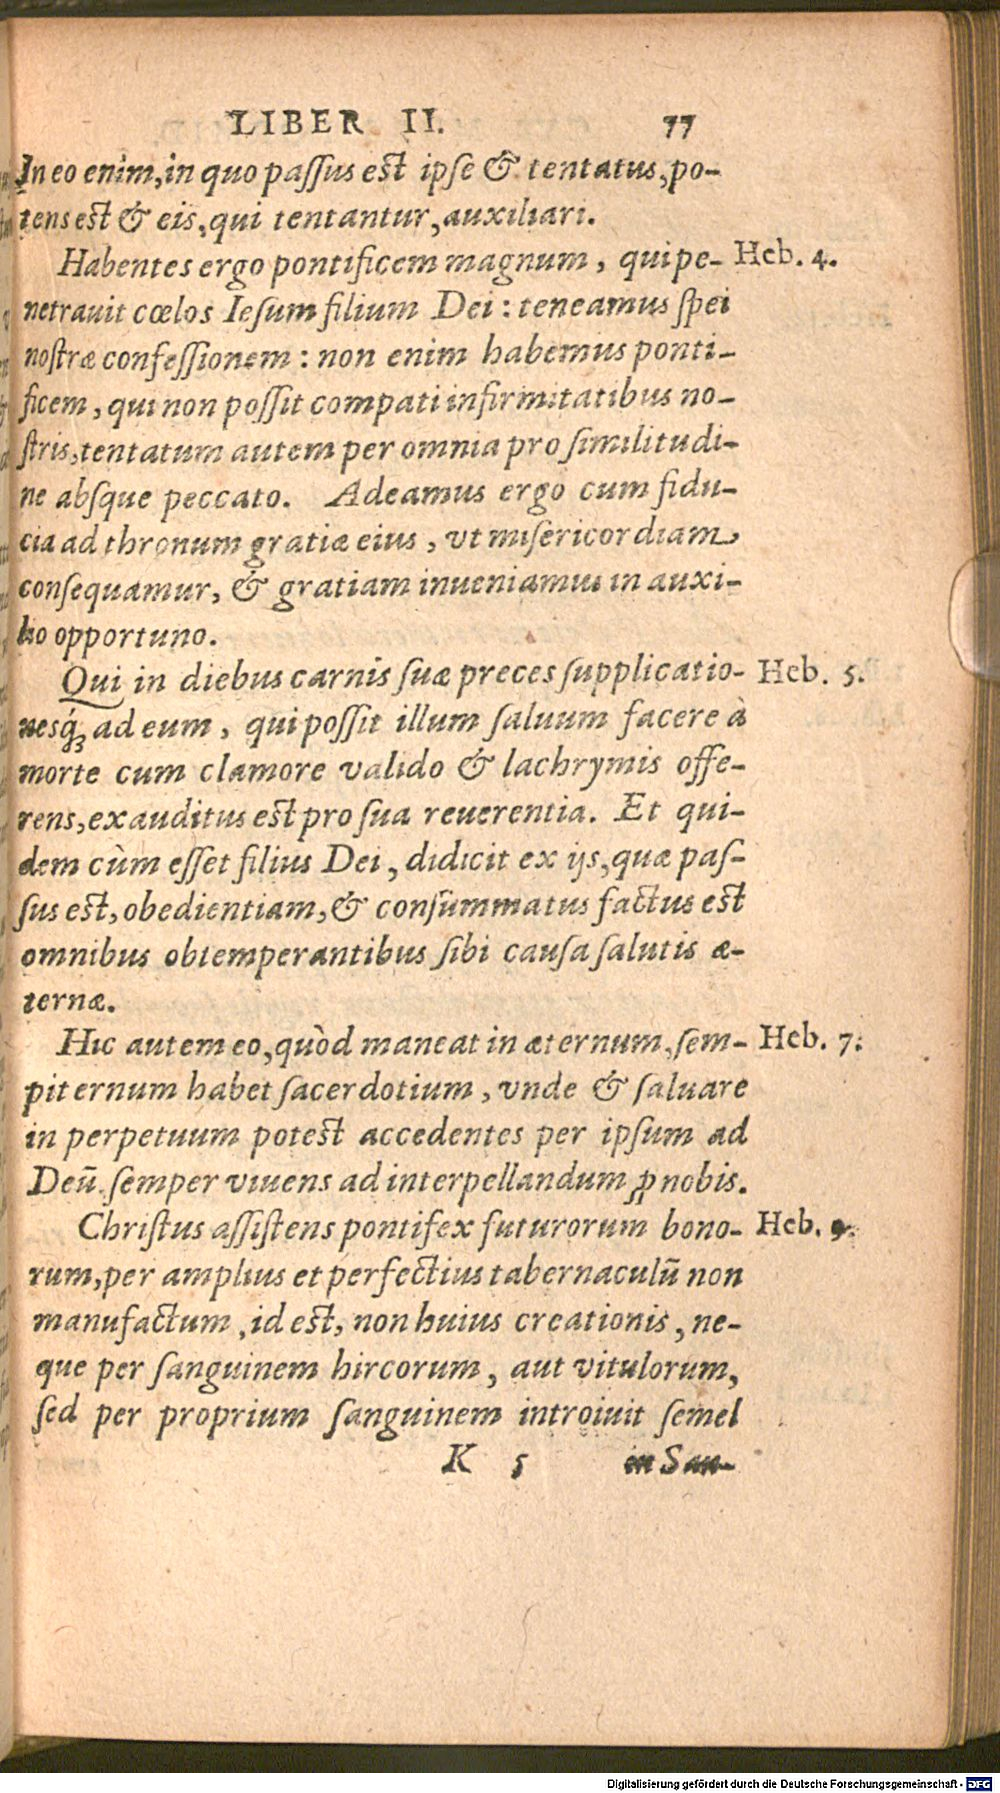 LIBER II. 77
In eo enim, in quo passus est ipse & tentatus, po-
tens est & eis, qui tentantur, auxiliari.
Habentes ergo pontificem magnum, qui pe- Heb. 4.
netrauit cœlos Iesum filium Dei: teneamus spei
nostræ confessionem: non enim habemus ponti-
ficem, qui non possit compati infirmitatibus no-
stris, tentatum autem per omnia pro similitudi-
ne absque peccato. Adeamus ergo cum fidu-
cia ad thronum gratiæ eius, vt misericordiam
consequamur, & gratiam inueniamus in auxi-
lio opportuno.
Qui in diebus carnis suæ preces supplicatio- Heb. 5.
nesq́; ad eum, qui possit illum saluum facere à
morte cum clamore valido & lachrymis offe-
rens, exauditus est pro sua reuerentia. Et qui-
dem cùm esset filius Dei, didicit ex ijs, quæ pas-
sus est, obedientiam, & consummatus factus est
omnibus obtemperantibus sibi causa salutis æ-
ternæ.
Hic autem eo, quòd maneat in æternum, sem- Heb. 7.
piternum habet sacerdotium, vnde & saluare
in perpetuum potest accedentes per ipsum ad
Deū semper viuens ad interpellandum ꝓ nobis.
Christus assistens pontifex futurorum bono- Heb. 9.
rum, per amplius et perfectius tabernaculū non
manufactum, id est, non huius creationis, ne-
que per sanguinem hircorum, aut vitulorum,
sed per proprium sanguinem introiuit semel
K 5 in San-
Digitalisierung gefördert durch die Deutsche Forschungsgemeinschaft - DFG